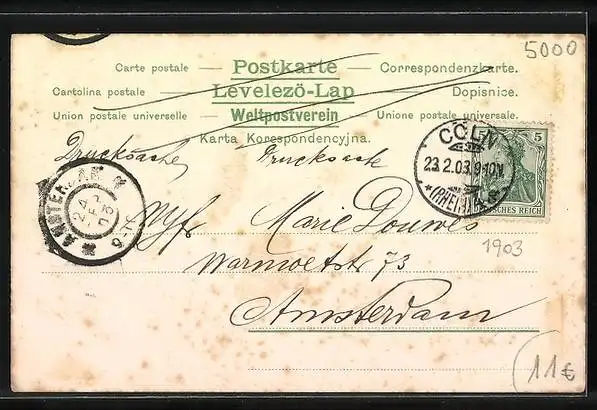 5000
Carte postale — Postkarte — Correspondenzkarte.
Cartolina postale — Levelezö-Lap — Dopisnice.
Union postale universelle — Weltpostverein — Unione postale universale.
Karta Korespondencyjna.
CÖLN
23.2.03.9-10V.
(RHEIN)
5
DEUTSCHES REICH
Drucksache Drucksache
AMSTERDAM
24
FEB
03
Mej. Marie Douwes
1903
Warmoetstr 73
Amsterdam
11€